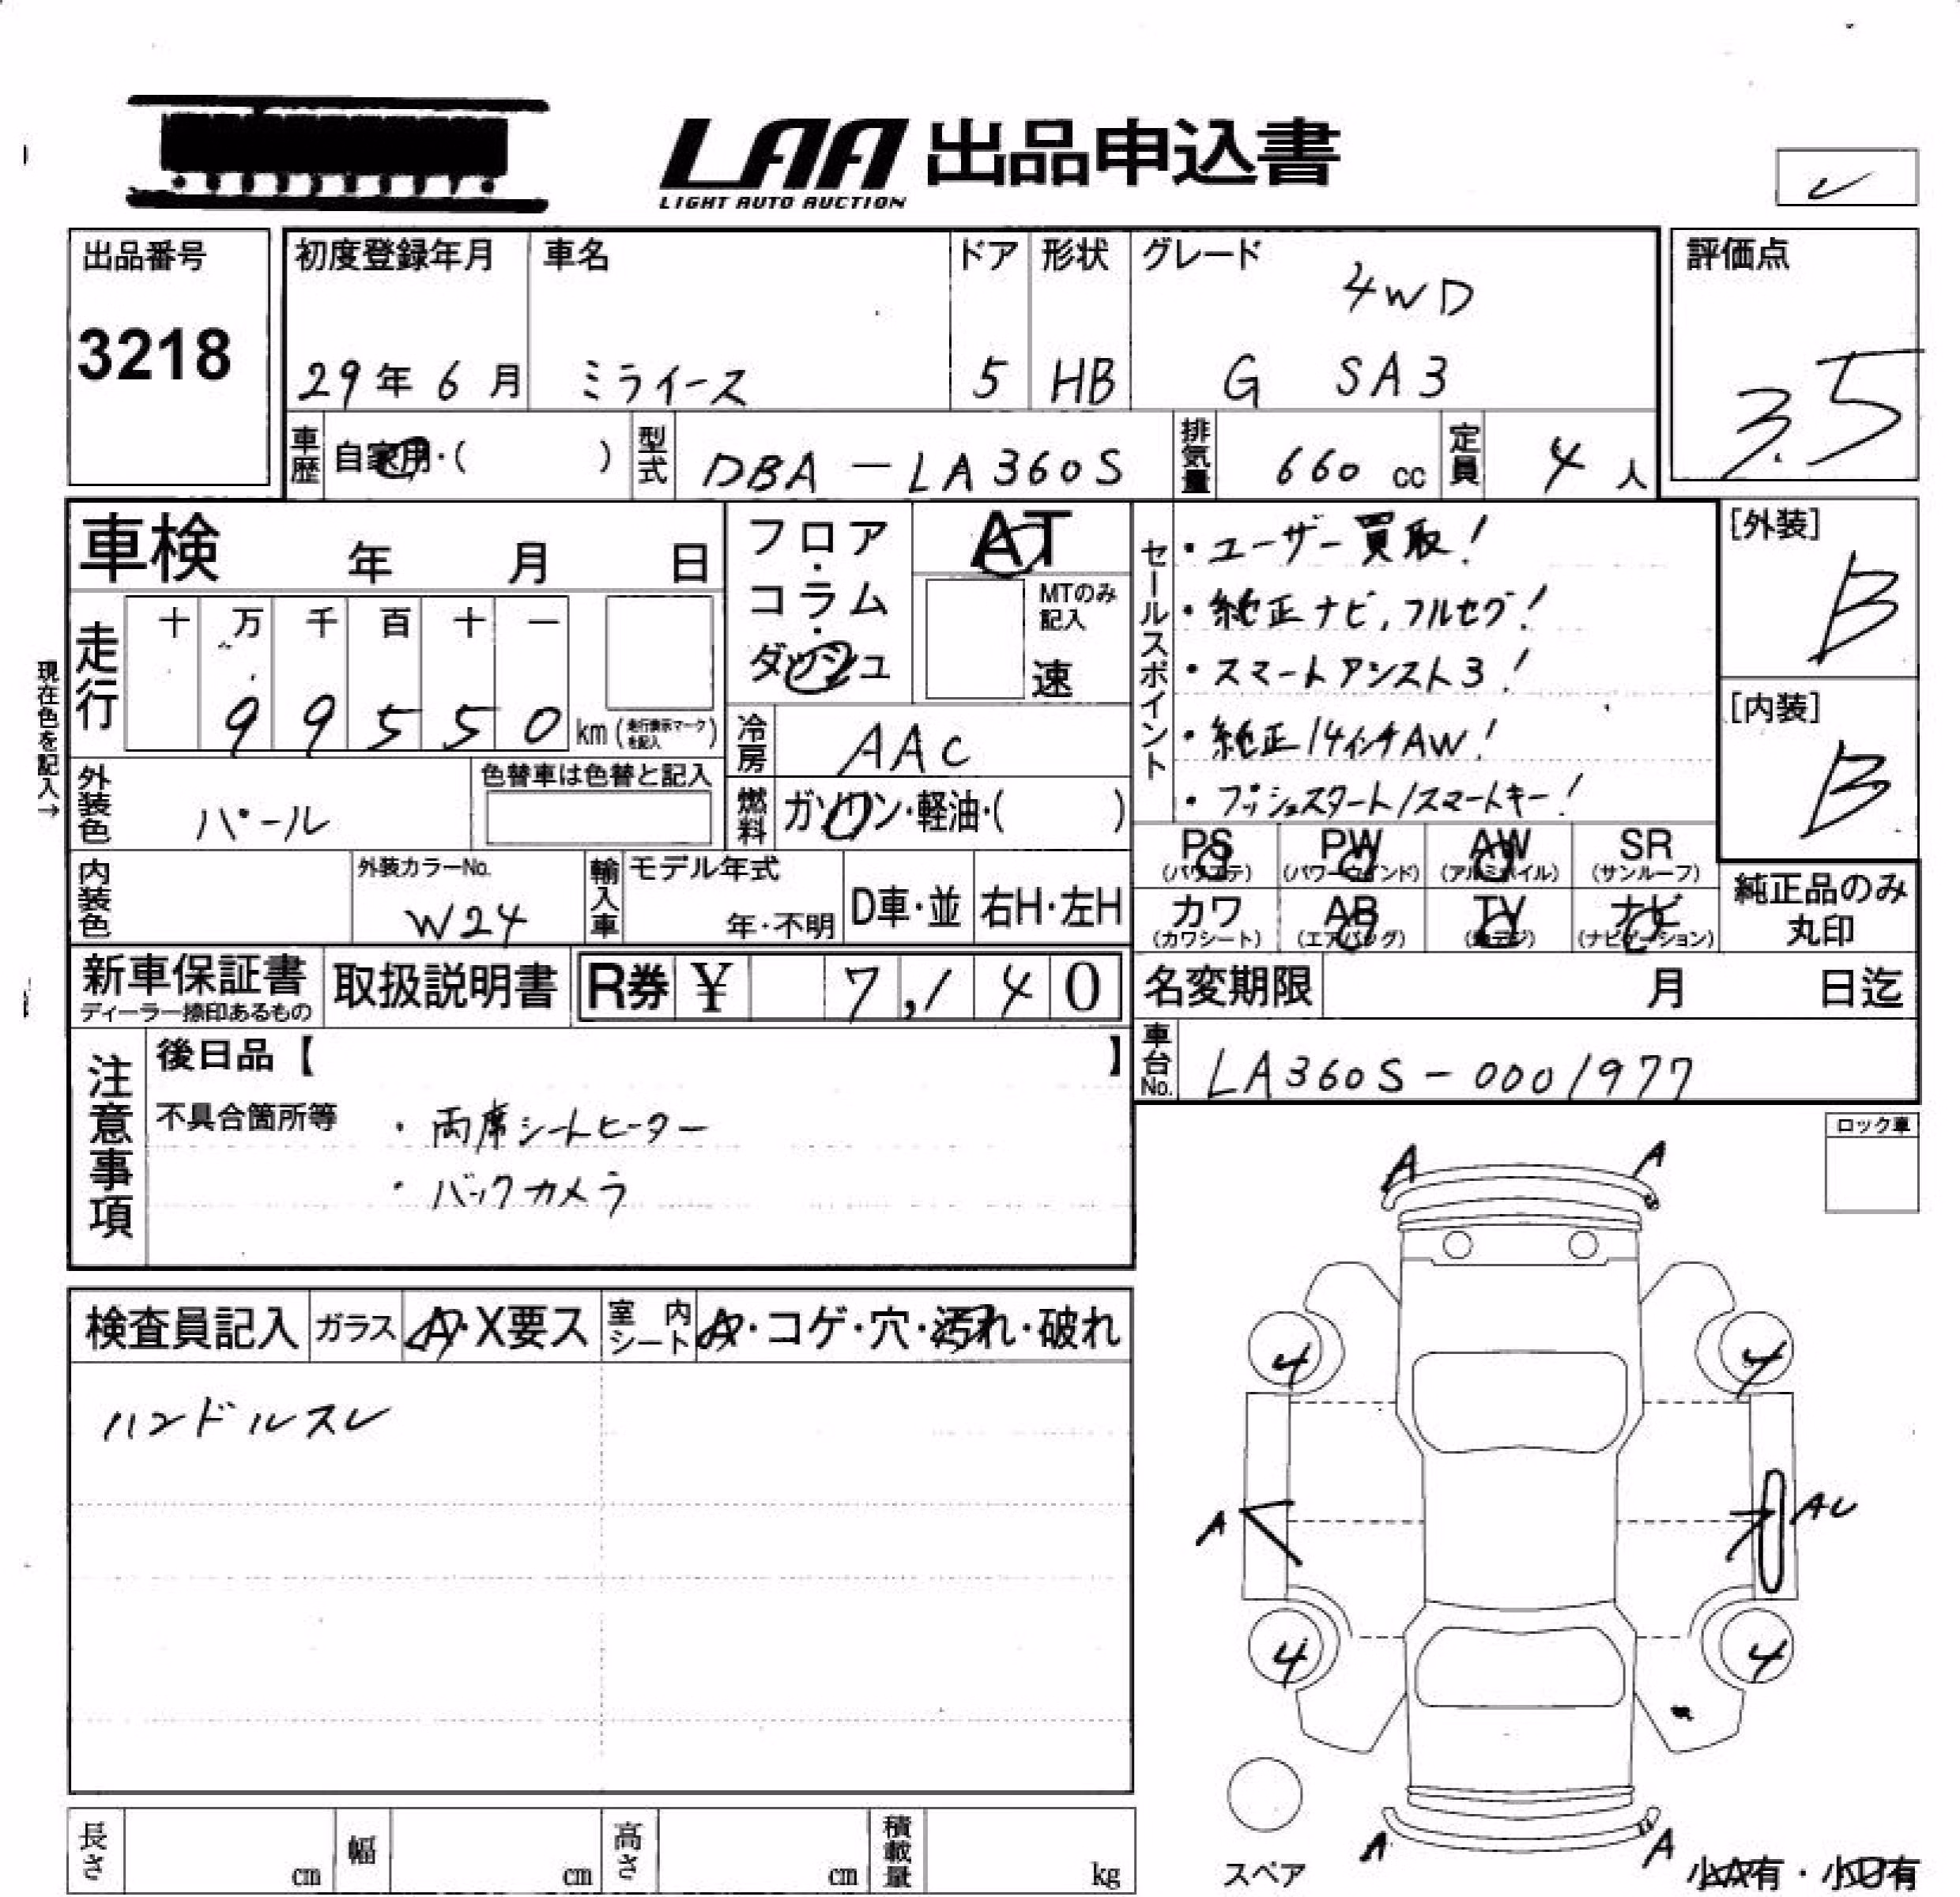 LAA 出品申込書
LIGHT AUTO AUCTION
レ
出品番号
3218
初度登録年月
29年 6月
車名
ミライース
ドア
5
形状
HB
グレード
4WD
G SA3
評価点
3.5
車歴 自家用・( )
型式 DBA-LA360S
排気量 660 cc
定員 4人
車検 年 月 日
フロア・コラム・ダッシュ
AT
MTのみ記入
速
セールスポイント
・ユーザー買取!
・純正ナビ,フルセグ!
・スマートアシスト3!
・純正14インチAW!
・プッシュスタート/スマートキー!
[外装]
B
[内装]
B
現在色を記入→
走行
十 万 千 百 十 一
9 9 5 5 0 km(走行表示マークを記入)
冷房 AAC
外装色 パール
色替車は色替と記入
燃料 ガソリン・軽油・( )
PS (パワステ)
PW (パワーウインド)
AW (アルミホイル)
SR (サンルーフ)
カワ (カワシート)
AB (エアバッグ)
TV (地デジ)
ナビ (ナビゲーション)
純正品のみ
丸印
内装色
外装カラーNo.
W24
輸入車 モデル年式
年・不明
D車・並
右H・左H
新車保証書
ディーラー捺印あるもの
取扱説明書
R券 ¥ 7,140
名変期限 月 日迄
車台No. LA360S-0001977
注意事項
後日品【 】
不具合箇所等
・両席シートヒーター
・バックカメラ
ロック車
検査員記入
ガラス A・X要ス
室内シート A・コゲ・穴・汚れ・破れ
ハンドルスレ
A A
4 4
A AU
4 4
A A
スペア
小A有・小U有
長さ cm
幅 cm
高さ cm
積載量 kg